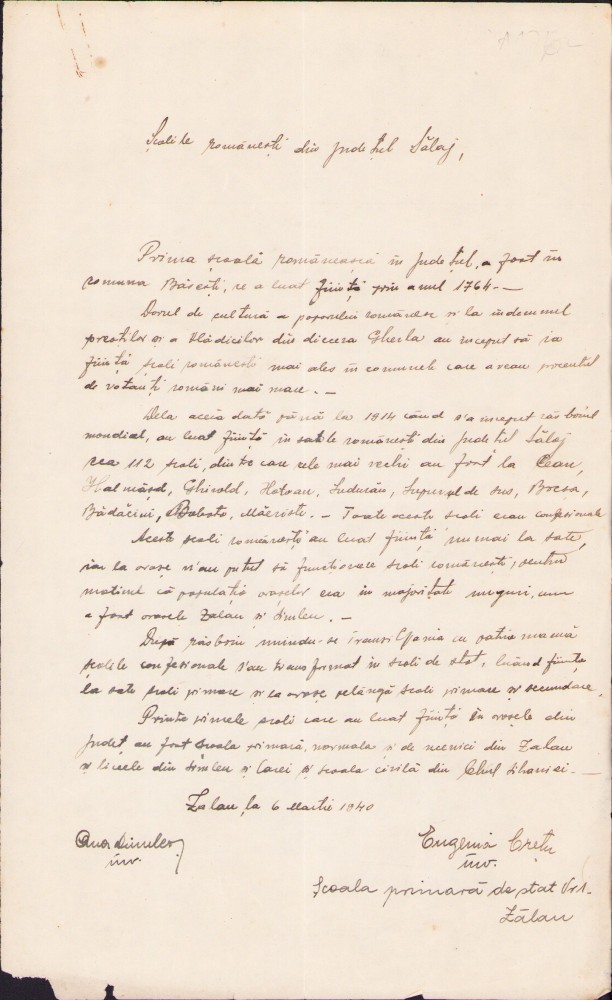 Școlile românești din județul Sălaj,
Prima școală românească în județul, a fost în
comuna Bărești, ce a luat ființă prin anul 1764.—
Dorul de cultură a poporului românesc și la îndemnul
preoților și a Vlădicilor din dieceza Gherla au început să ia
ființă școli românești mai ales în comunele care aveau procentul
de votanți români mai mare. —
Dela aceia dată până la 1914 când s'a început războiul
mondial, au luat ființă în satele românești din județul Sălaj
cca 112 școli, dintre care cele mai vechi au fost la Cean,
Halmăsd, Ghirolt, Hotoan, Supurul de sus, Bocsa,
Bădăcini, Bobota, Măeriste. — Toate aceste școli erau confesionale
Aceste școli românești au luat ființă numai la sate,
iar la orașe n'au putut să funcționeze școli românești, pentru
motivul că populația orașelor era în majoritate unguri, cum
a fost orașele Zalău și Șimleu. —
După războiu unindu-se Transilvania cu patria mamă
școlile confesionale s'au transformat în școli de stat, luând ființă
la sate școli primare și la orașe pelângă școli primare și secundare.
Printre primele școli care au luat ființă în orașele din
județ au fost școala primară, normala și de ucenici din Zalau
și liceele din Șimleu și Carei și școala civilă din Cehul Silvaniei. —
Zalau, la 6 Martie 1940
Eugenia Crețu
înv. înv.
Școala primară de stat Nr. 1.
Zălau